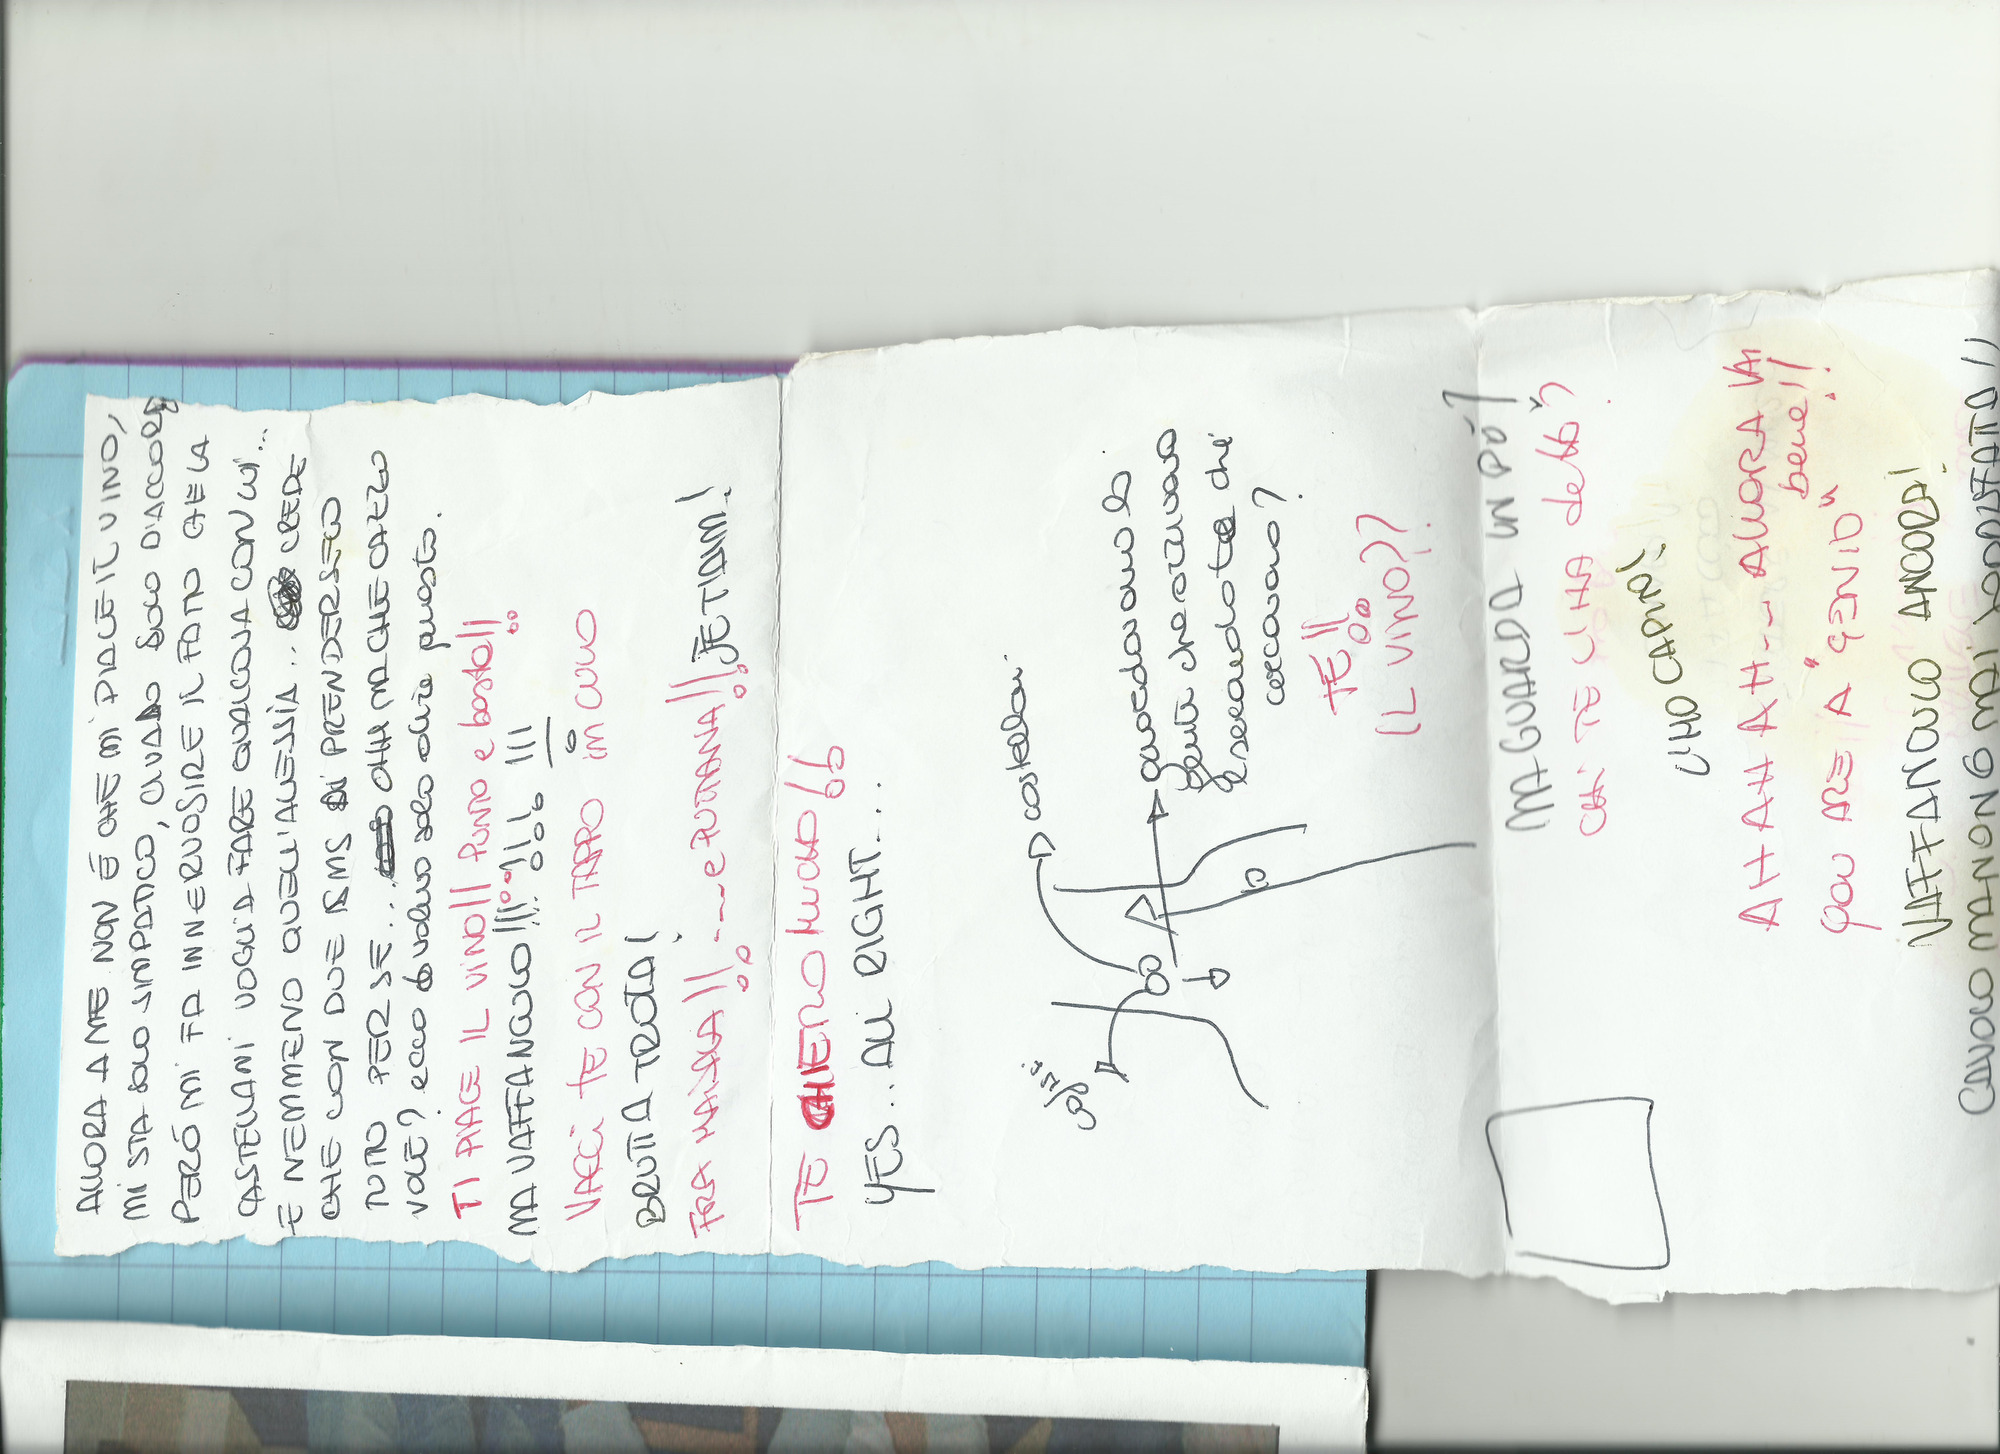 ALLORA A ME NON È CHE MI PIACE IL VINO,
MI STA SOLO SIMPATICO, QUINDI SOLO D'ACCORDO
PERÓ MI FA INNERVOSIRE IL FATTO CHE LA
CASTELLANI VOGLIA FARE QUALCOSA CON LUI...
E NEMMENO QUELL'ALESSIA... CREDE
CHE CON DUE SMS DI PRENDERSELO
TUTTO PER SE... OHH MA CHE CAZZO
VOLE? ecco volevo solo dire questo.
TI PIACE IL VINO!! PUNTO e basta!!
MA VAFFANCULO!!! !!! !!!
VACCI TE CON IL TAPPO in CULO
BRUTTA TROIA!
FRA MAIALA!! ---- e PUTTANA!! JE T'AIM!
TE CHIERO MUCHO!!
YES.. ALL RIGHT....
castellani
guardavano la
gente che arrivava
secondo te chi
cercavano?
TE!!
IL VINO??
MA GUARDA UN PÓ!
CHI TE L'HA detto?
L'HO CAPITO!
AH AH AH -- ALLORA VA
bene!!
YOU ARE A "GENIO"!!
VAFFANCULO ANCORA!
CAVOLO MA NON 6 MAI SODDISFATTA!!